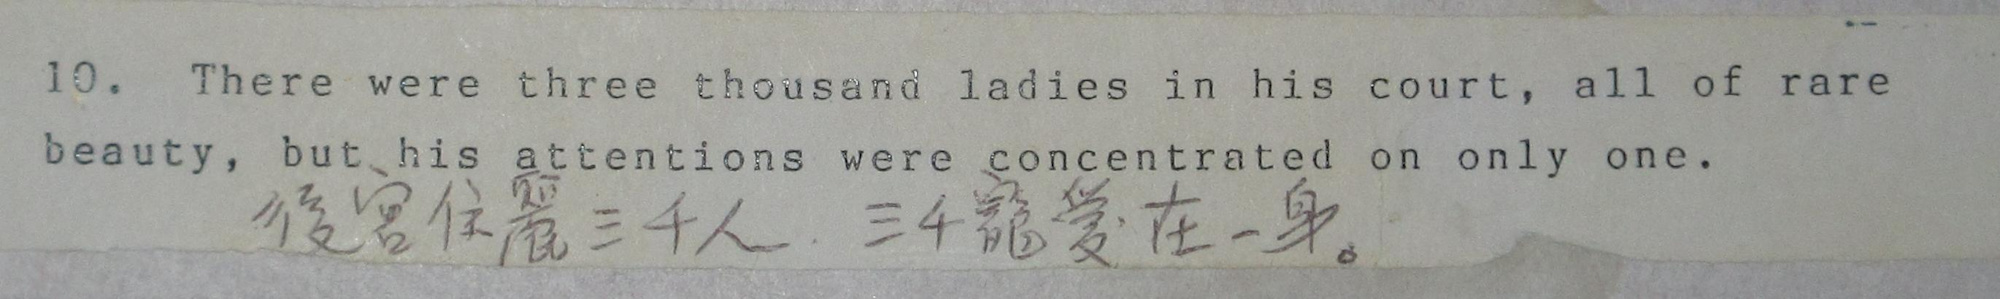 10. There were three thousand ladies in his court, all of rare
beauty, but his attentions were concentrated on only one.
後宮佳麗三千人.三千寵愛在一身。